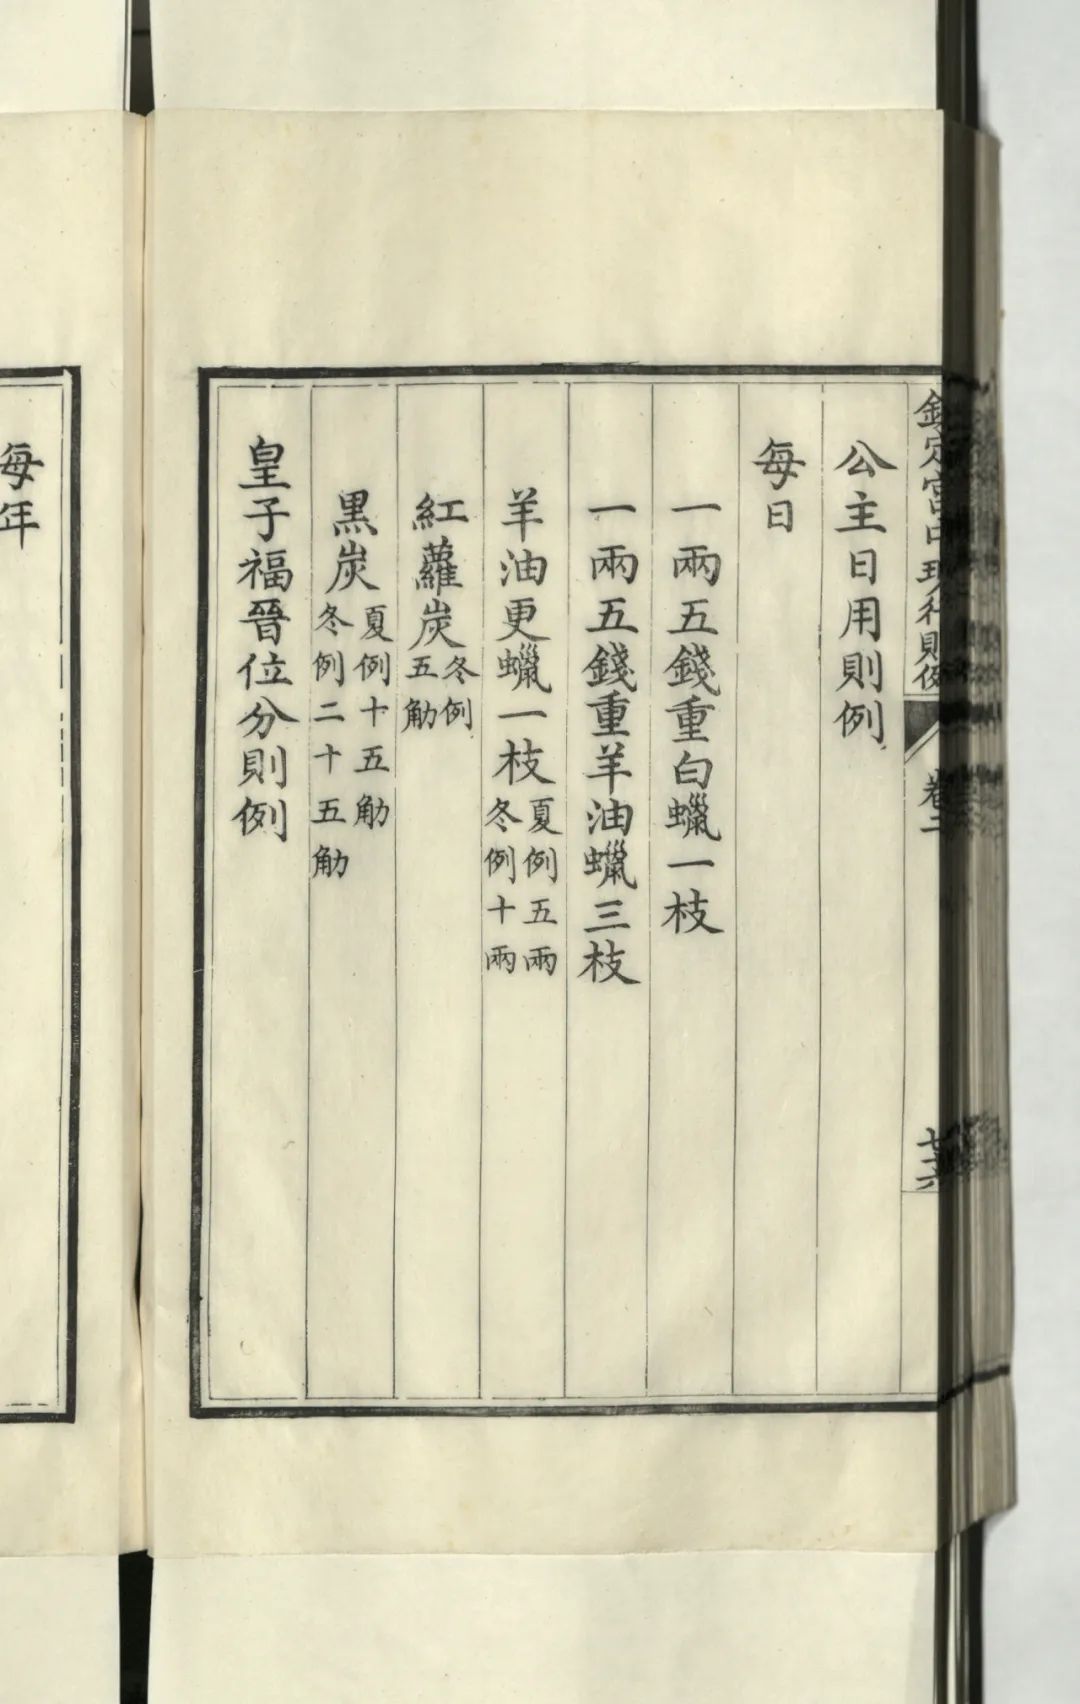 欽定宮中現行則例
卷二
七十六
公主日用則例
每日
一兩五錢重白蠟一枝
一兩五錢重羊油蠟三枝
羊油更蠟一枝夏例五兩冬例十兩
紅蘿炭冬例五觔
黑炭夏例十五觔冬例二十五觔
皇子福晉位分則例
每年